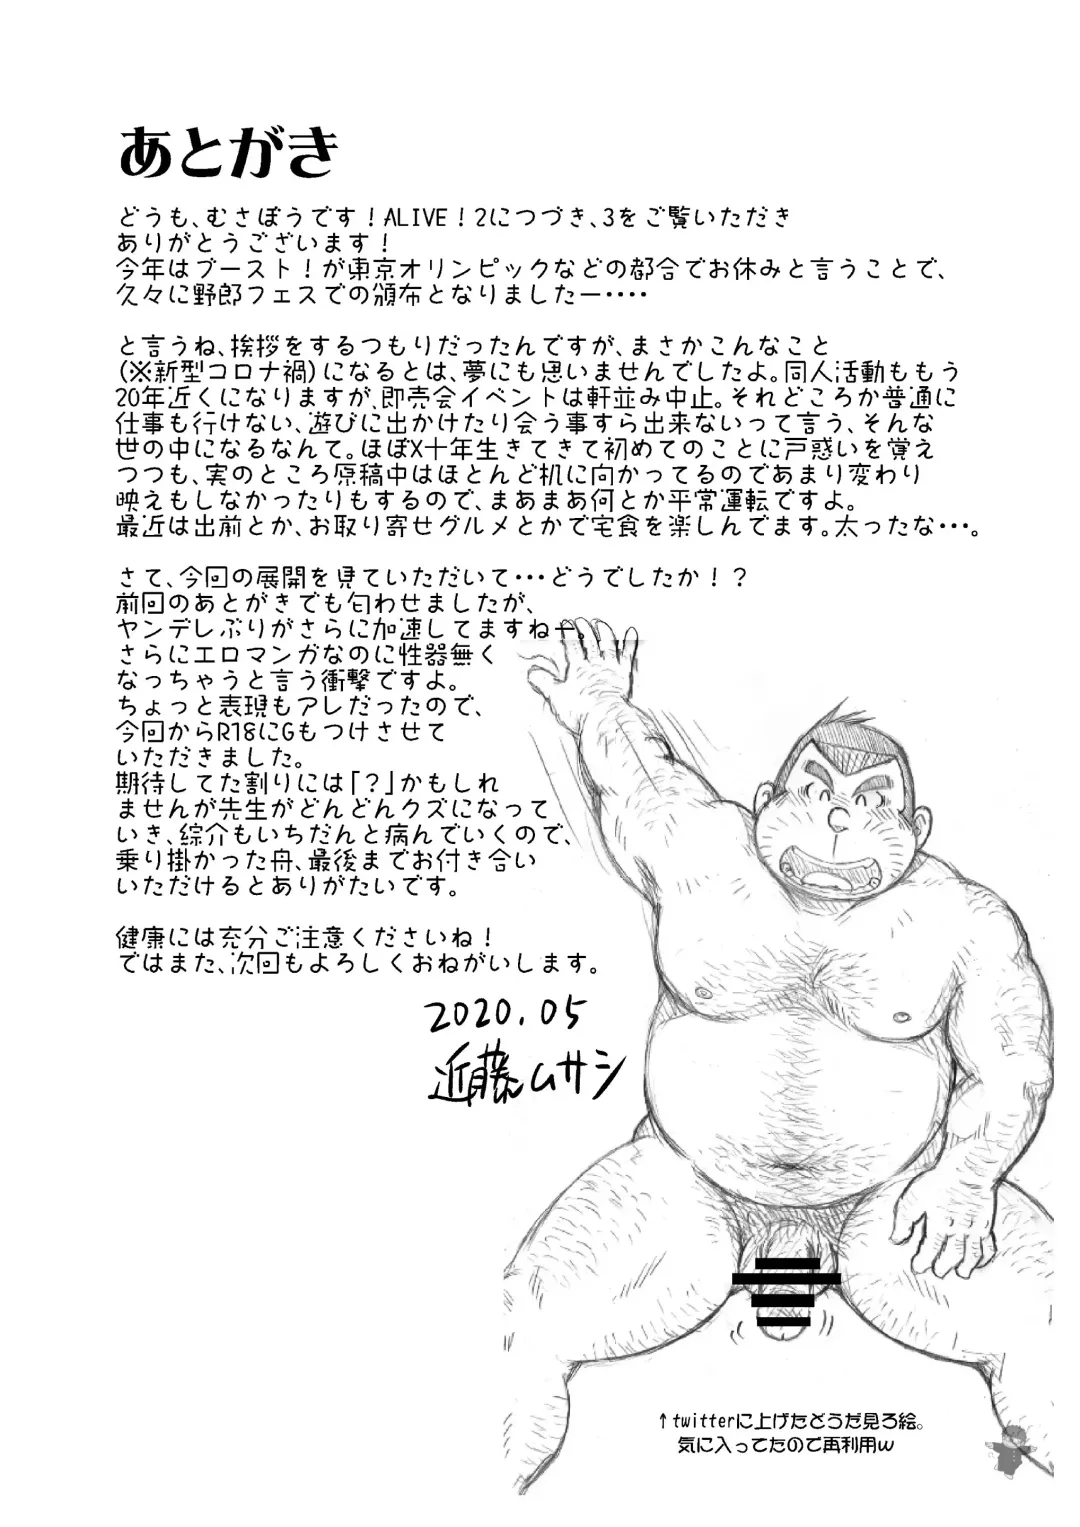 あとがき
どうも、むさぼうです！ALIVE！2につづき、3をご覧いただき
ありがとうございます！
今年はブースト！が東京オリンピックなどの都合でお休みと言うことで、
久々に野郎フェスでの頒布となりましたー････
と言うね、挨拶をするつもりだったんですが、まさかこんなこと
(※新型コロナ禍)になるとは、夢にも思いませんでしたよ。同人活動ももう
20年近くになりますが、即売会イベントは軒並み中止。それどころか普通に
仕事も行けない、遊びに出かけたり会う事すら出来ないって言う、そんな
世の中になるなんて。ほぼX十年生きてきて初めてのことに戸惑いを覚え
つつも、実のところ原稿中はほとんど机に向かってるのであまり変わり
映えもしなかったりもするので、まあまあ何とか平常運転ですよ。
最近は出前とか、お取り寄せグルメとかで宅食を楽しんでます。太ったな･･･。
さて、今回の展開を見ていただいて･･･どうでしたか！？
前回のあとがきでも匂わせましたが、
ヤンデレぶりがさらに加速してますねー。
さらにエロマンガなのに性器無く
なっちゃうと言う衝撃ですよ。
ちょっと表現もアレだったので、
今回からR18にGもつけさせて
いただきました。
期待してた割りには「？」かもしれ
ませんが先生がどんどんクズになって
いき、綜介もいちだんと病んでいくので、
乗り掛かった舟、最後までお付き合い
いただけるとありがたいです。
健康には充分ご注意くださいね！
ではまた、次回もよろしくおねがいします。
2020.05
近藤ムサシ
↑twitterに上げたどうだ見ろ絵。
気に入ってたので再利用w